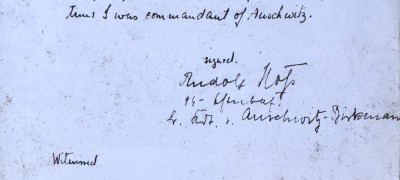 time I was commandant of Auschwitz.
signed.
Rudolf Höß
SS-
fr. Kdt. v. Auschwitz-Birkenau
Witnessed